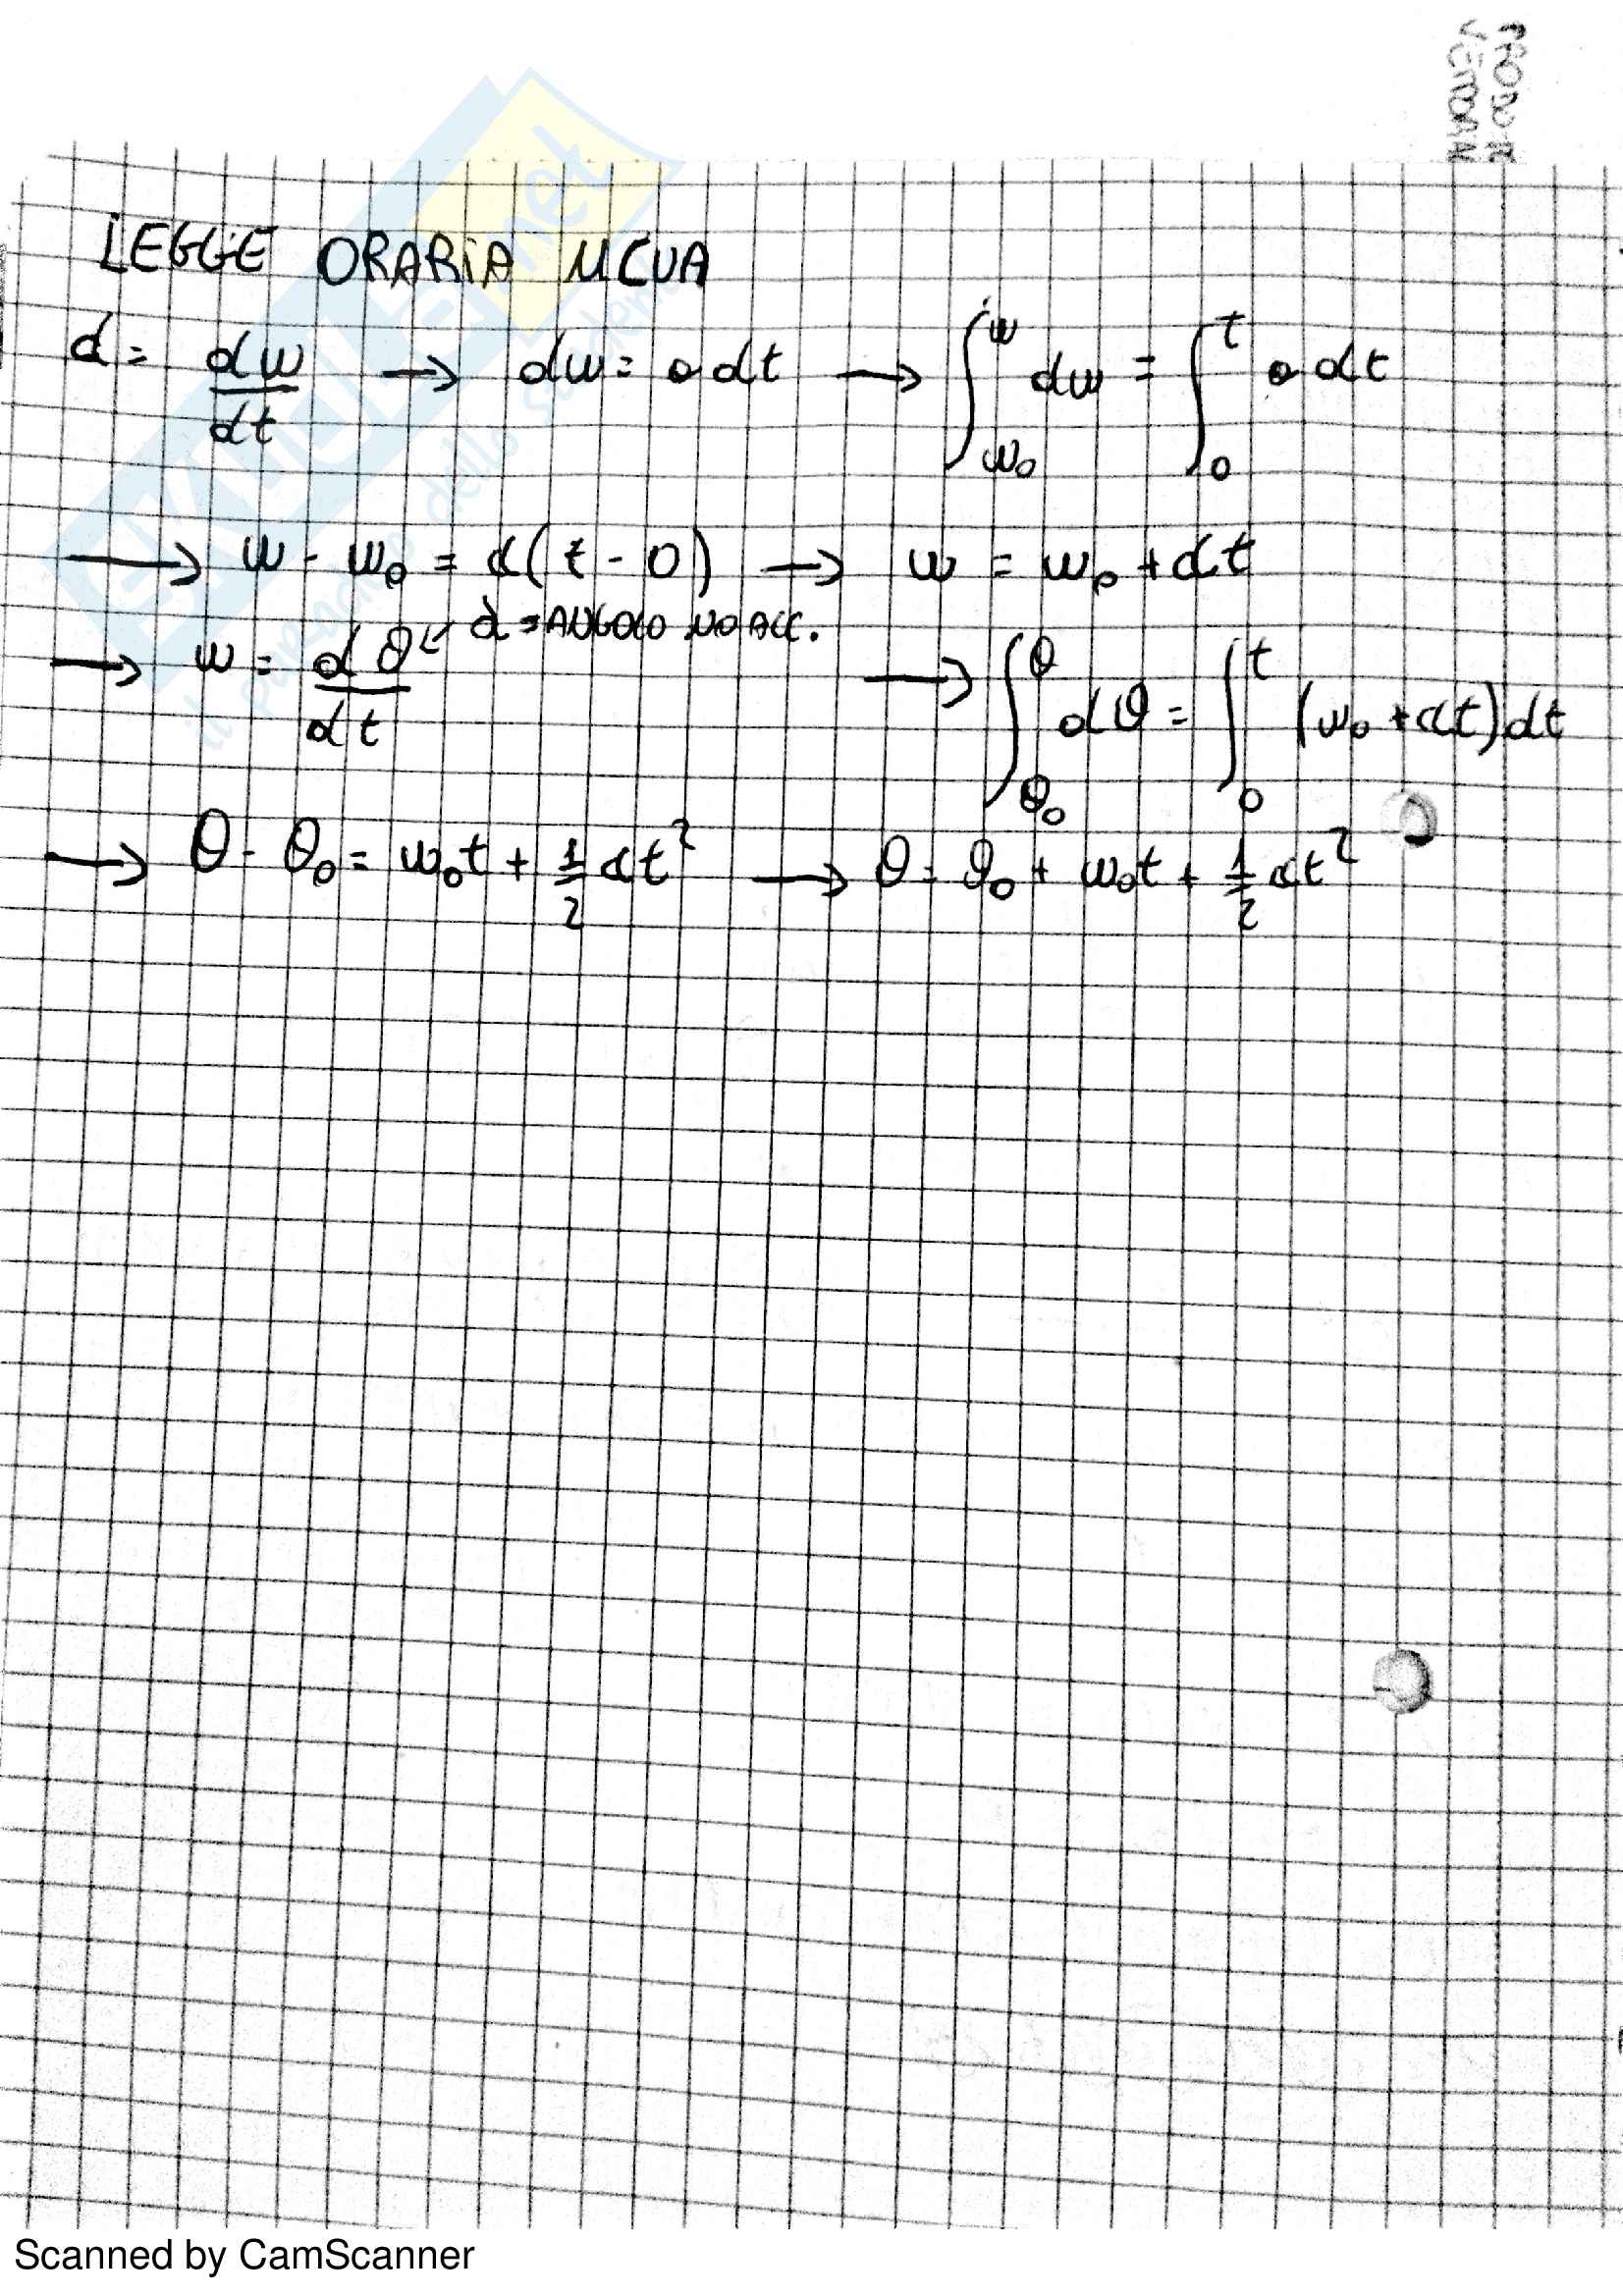 LEGGE ORARIA MCUA
α = dω/dt → dω = α dt → ∫_{ω₀}^{ω} dω = ∫_{0}^{t} α dt
→ ω - ω₀ = α(t - 0) → ω = ω₀ + αt
α = ANGOLO NO ACC.
→ ω = dθ/dt → ∫_{θ₀}^{θ} dθ = ∫_{0}^{t} (ω₀ + αt)dt
→ θ - θ₀ = ω₀t + 1/2 αt² → θ = θ₀ + ω₀t + 1/2 αt²
Scanned by CamScanner